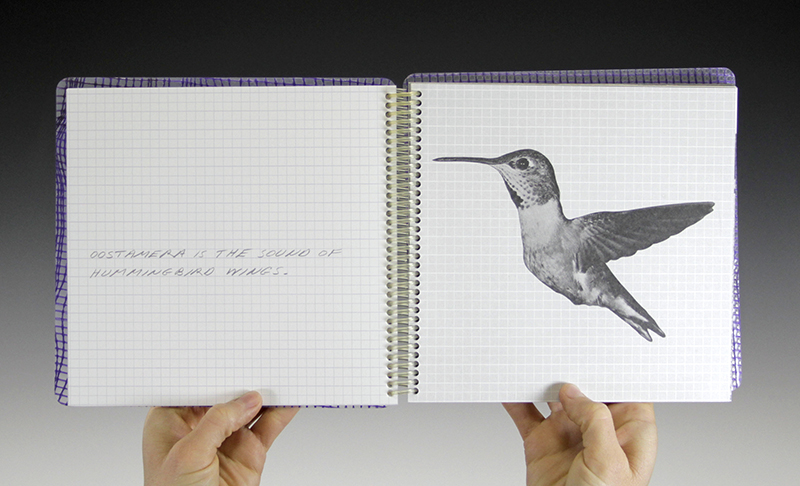 OOSTAMERA IS THE SOUND OF
HUMMINGBIRD WINGS.